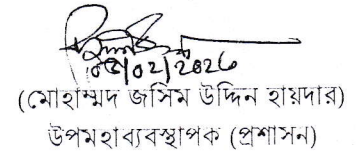 ০৫/০২/২০২৬
(মোহাম্মদ জসিম উদ্দিন হায়দার)
উপমহাব্যবস্থাপক (প্রশাসন)